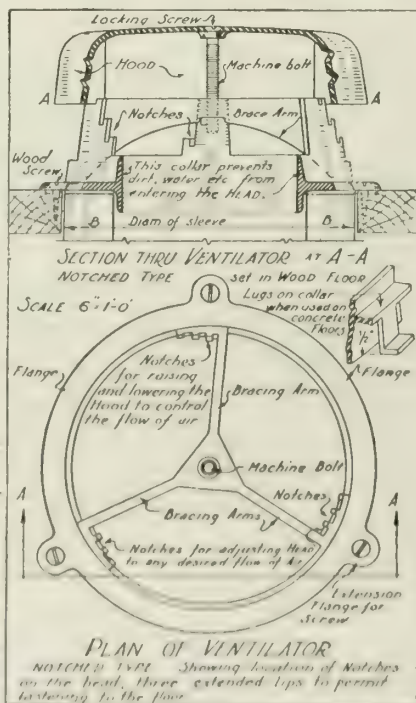 Locking Screw
HOOD
Machine bolt
A
A
Notches
Brace Arm
Wood
Screw
This collar prevents
dirt, water etc from
entering the HEAD.
B
B
Diam of sleeve
SECTION THRU VENTILATOR AT A-A
NOTCHED TYPE set in WOOD FLOOR
SCALE 6"=1'-0"
Lugs on collar
when used on
concrete
Floors
1/2"
Flange
Flange
Notches
for raising
and lowering the
Hood to control
the flow of air
Bracing Arm
Machine Bolt
Notches
A
A
Bracing Arms
Notches for adjusting HEAD
to any desired flow of Air
Extension
Flange for
Screw
PLAN OF VENTILATOR
NOTCHED TYPE Showing location of Notches
on the head, three extended lips to permit
fastening to the floor